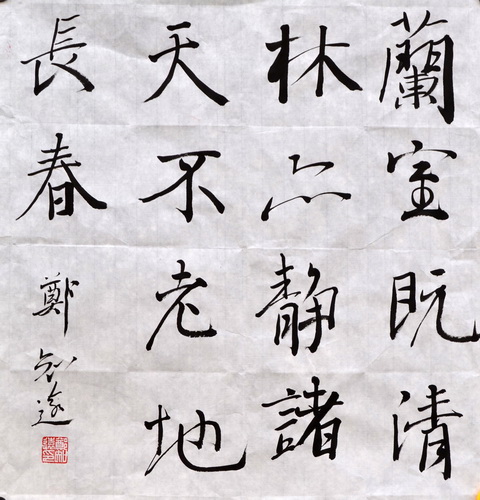 蘭室既清
林亦静諸
天不老地
長春
鄭